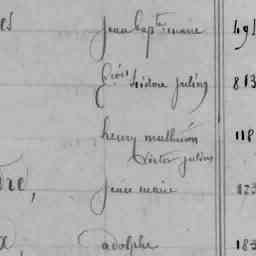 es jean bapte marie 491
frois isidore julien 813
henry mathurin 118
victor julien
dre, jean marie 123
adolphe 183